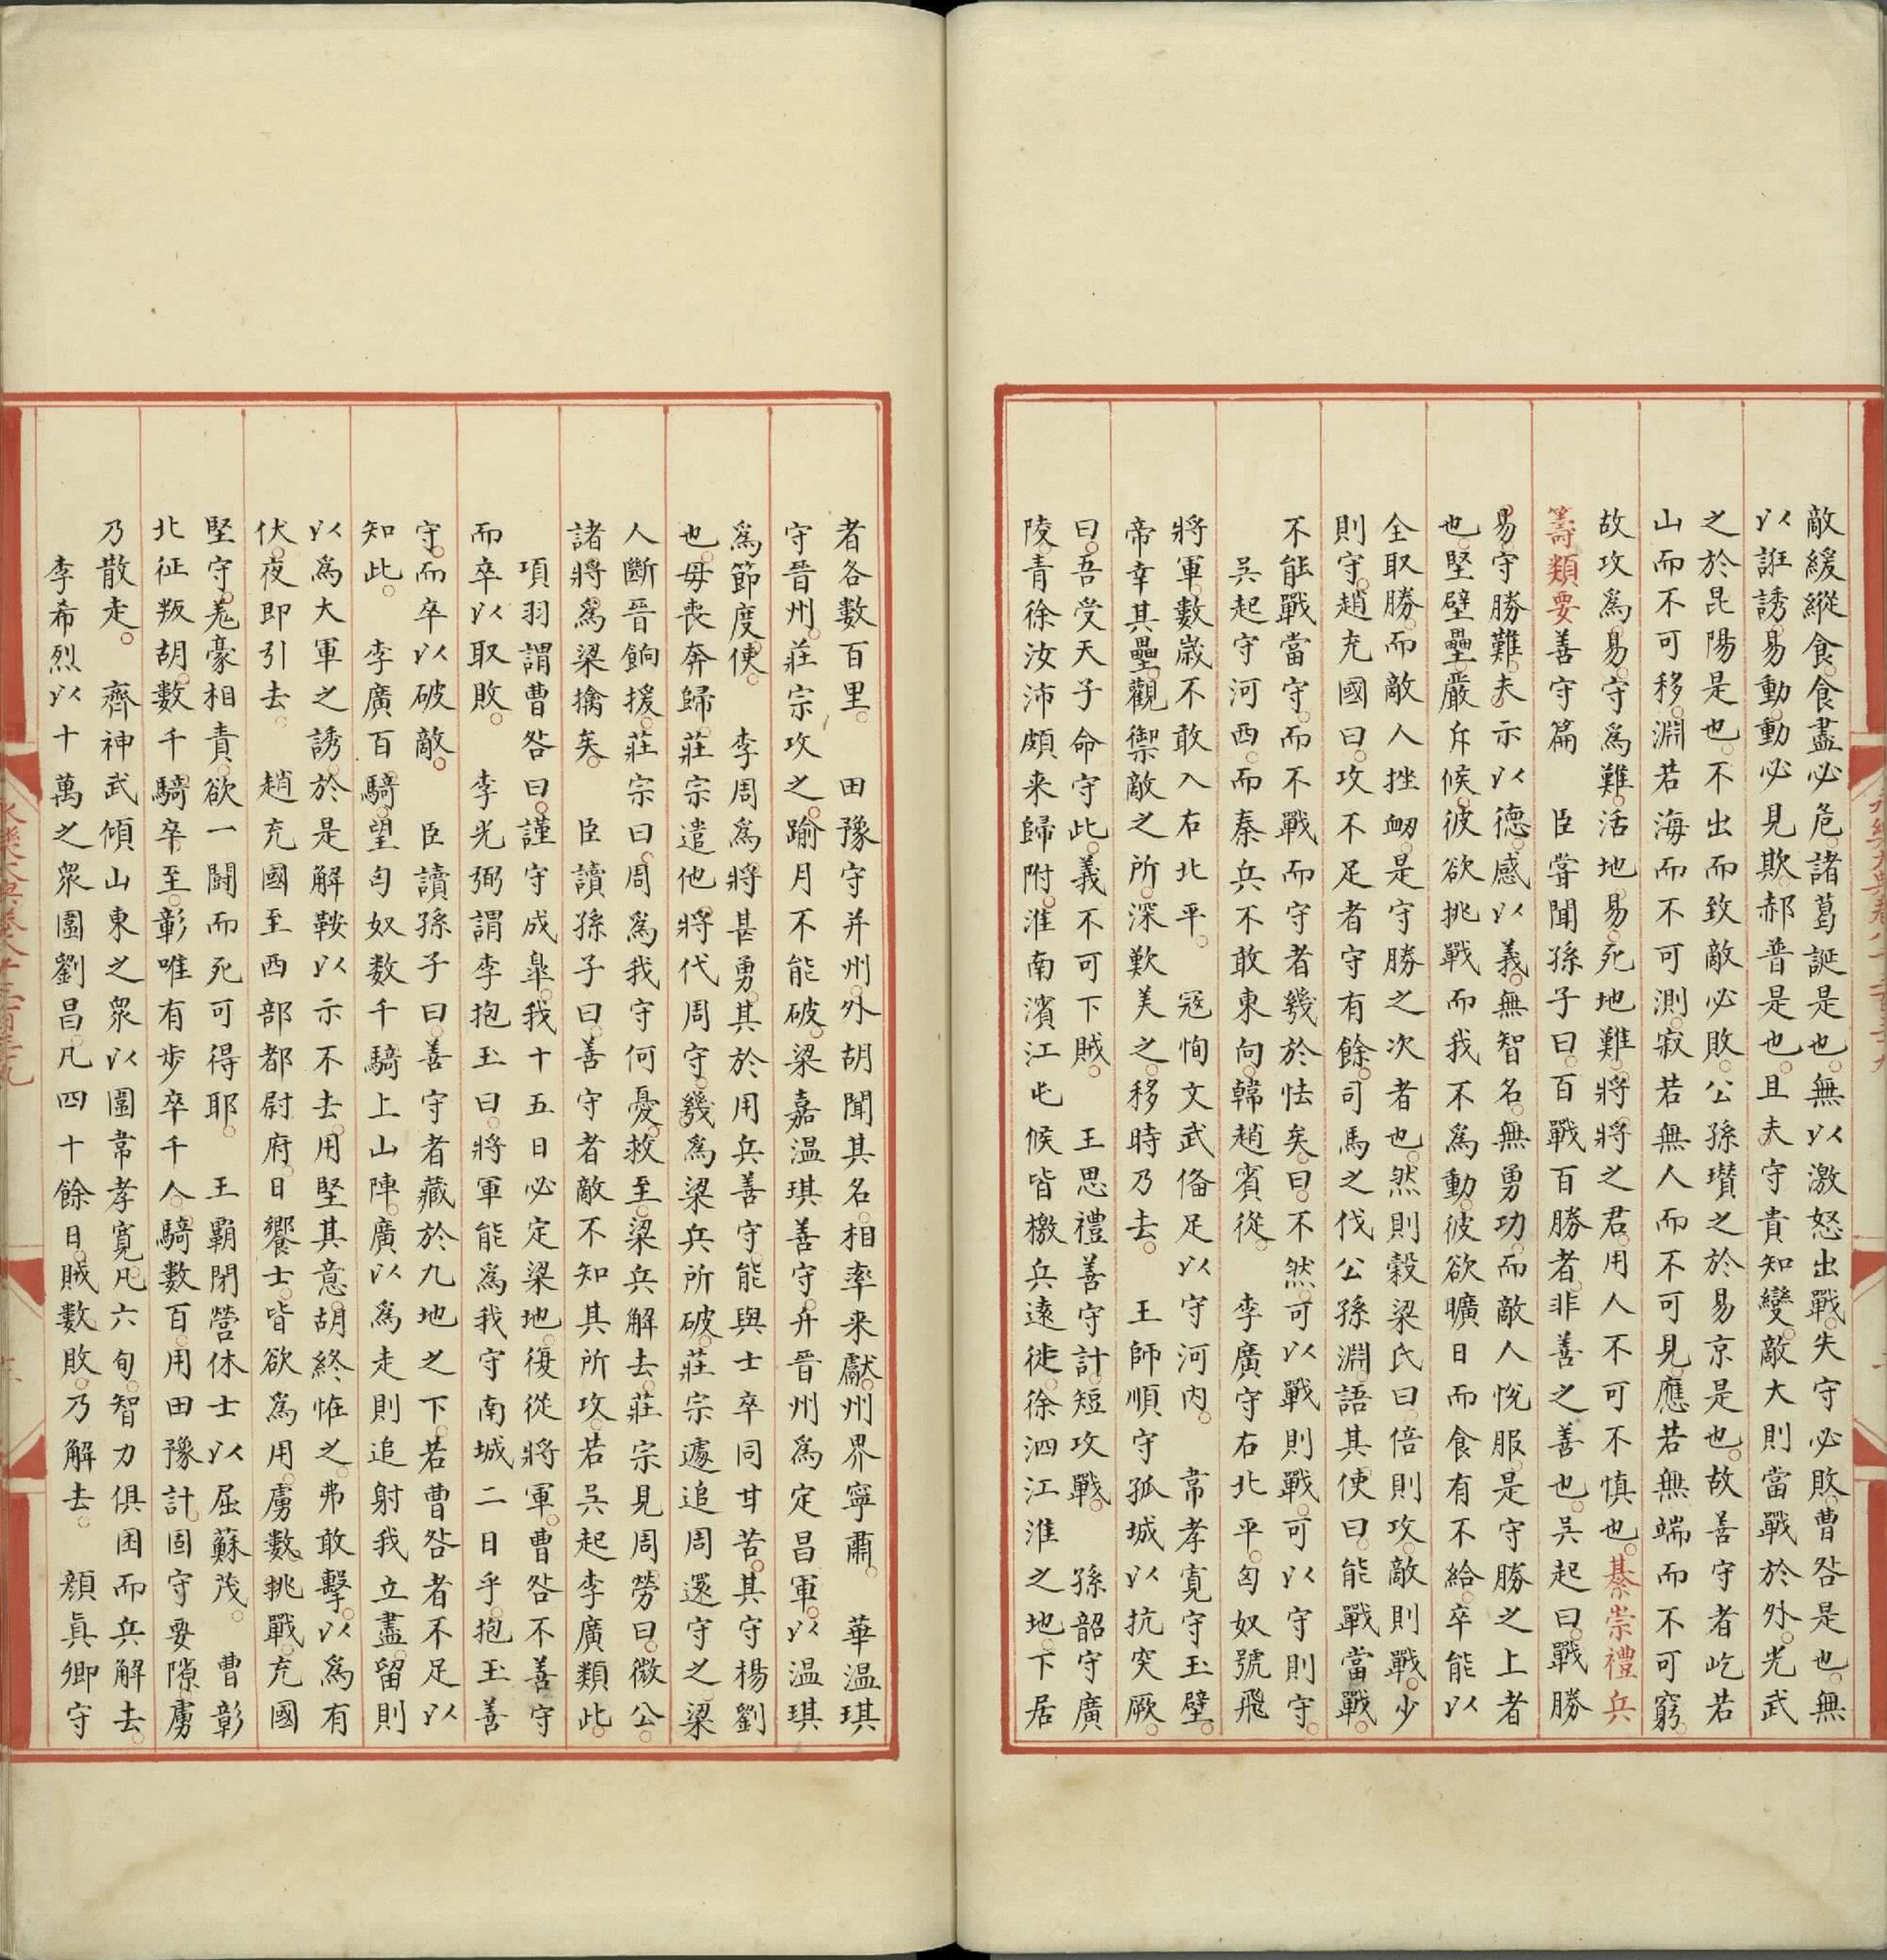 敵緩縱食食盡必危諸葛誕是也無以激怒出戰失守必敗曹咎是也無
以誑誘易動動必見欺郝普是也且夫守貴知變敵大則當戰於外光武
之於昆陽是也不出而致敵必敗公孫瓚之於易京是也故善守者屹若
山而不可移淵若海而不可測寂若無人而不可見應若無端而不可窮
故攻爲易守爲難活地易死地難將將之君用人不可不慎也綦崇禮兵
籌類要善守篇 臣嘗聞孫子曰百戰百勝者非善之善也吳起曰戰勝
易守勝難夫示以德感以義無智名無勇功而敵人悅服是守勝之上者
也堅壁壘嚴斥候彼欲挑戰而我不爲動彼欲曠日而食有不給卒能以
全取勝而敵人挫衂是守勝之次者也然則穀梁氏曰倍則攻敵則戰少
則守趙充國曰攻不足者守有餘司馬之伐公孫淵語其使曰能戰當戰
不能戰當守而不戰而守者幾於怯矣曰不然可以戰則戰可以守則守
吳起守河西而秦兵不敢東向韓趙賓從 李廣守右北平匈奴號飛
將軍數歲不敢入右北平 寇恂文武俻足以守河内 韋孝寬守玉壁
帝幸其壘觀禦敵之所深歎美之移時乃去 王師順守孤城以抗突厥
曰吾受天子命守此義不可下賊 王思禮善守計短攻戰 孫韶守廣
陵青徐汝沛頗来歸附淮南濱江屯候皆檄兵遠徙徐泗江淮之地下居
者各數百里 田豫守并州外胡聞其名相率来獻州界寧肅 華温琪
守晉州莊宗攻之踰月不能破梁嘉温琪善守升晉州爲定昌軍以温琪
爲節度使 李周爲將甚勇其於用兵善守能與士卒同甘苦其守楊劉
也毋喪奔歸莊宗遣他將代周守幾爲梁兵所破莊宗遽追周還守之梁
人斷晉餉援莊宗曰周爲我守何憂救至梁兵解去莊宗見周勞曰微公
諸將爲梁擒矣 臣讀孫子曰善守者敵不知其所攻若吳起李廣類此
項羽謂曹咎曰謹守成臯我十五日必定梁地復從將軍曹咎不善守
而卒以取敗 李光弼謂李抱玉曰將軍能爲我守南城二日乎抱玉善
守而卒以破敵 臣讀孫子曰善守者藏於九地之下若曹咎者不足以
知此 李廣百騎望匈奴数千騎上山陣廣以爲走則追射我立盡留則
以爲大軍之誘於是解鞍以示不去用堅其意胡終恠之弗敢擊以爲有
伏夜即引去 趙充國至西部都尉府日饗士皆欲爲用虜數挑戰充國
堅守羗豪相責欲一鬪而死可得耶 王霸閉營休士以屈蘇茂 曹彰
北征叛胡數千騎卒至彰唯有步卒千人騎數百用田豫計固守要隙虜
乃散走 齊神武傾山東之衆以圍韋孝寬凡六旬智力俱困而兵解去
李希烈以十萬之衆圍劉昌凡四十餘日賊數敗乃解去 顏眞卿守